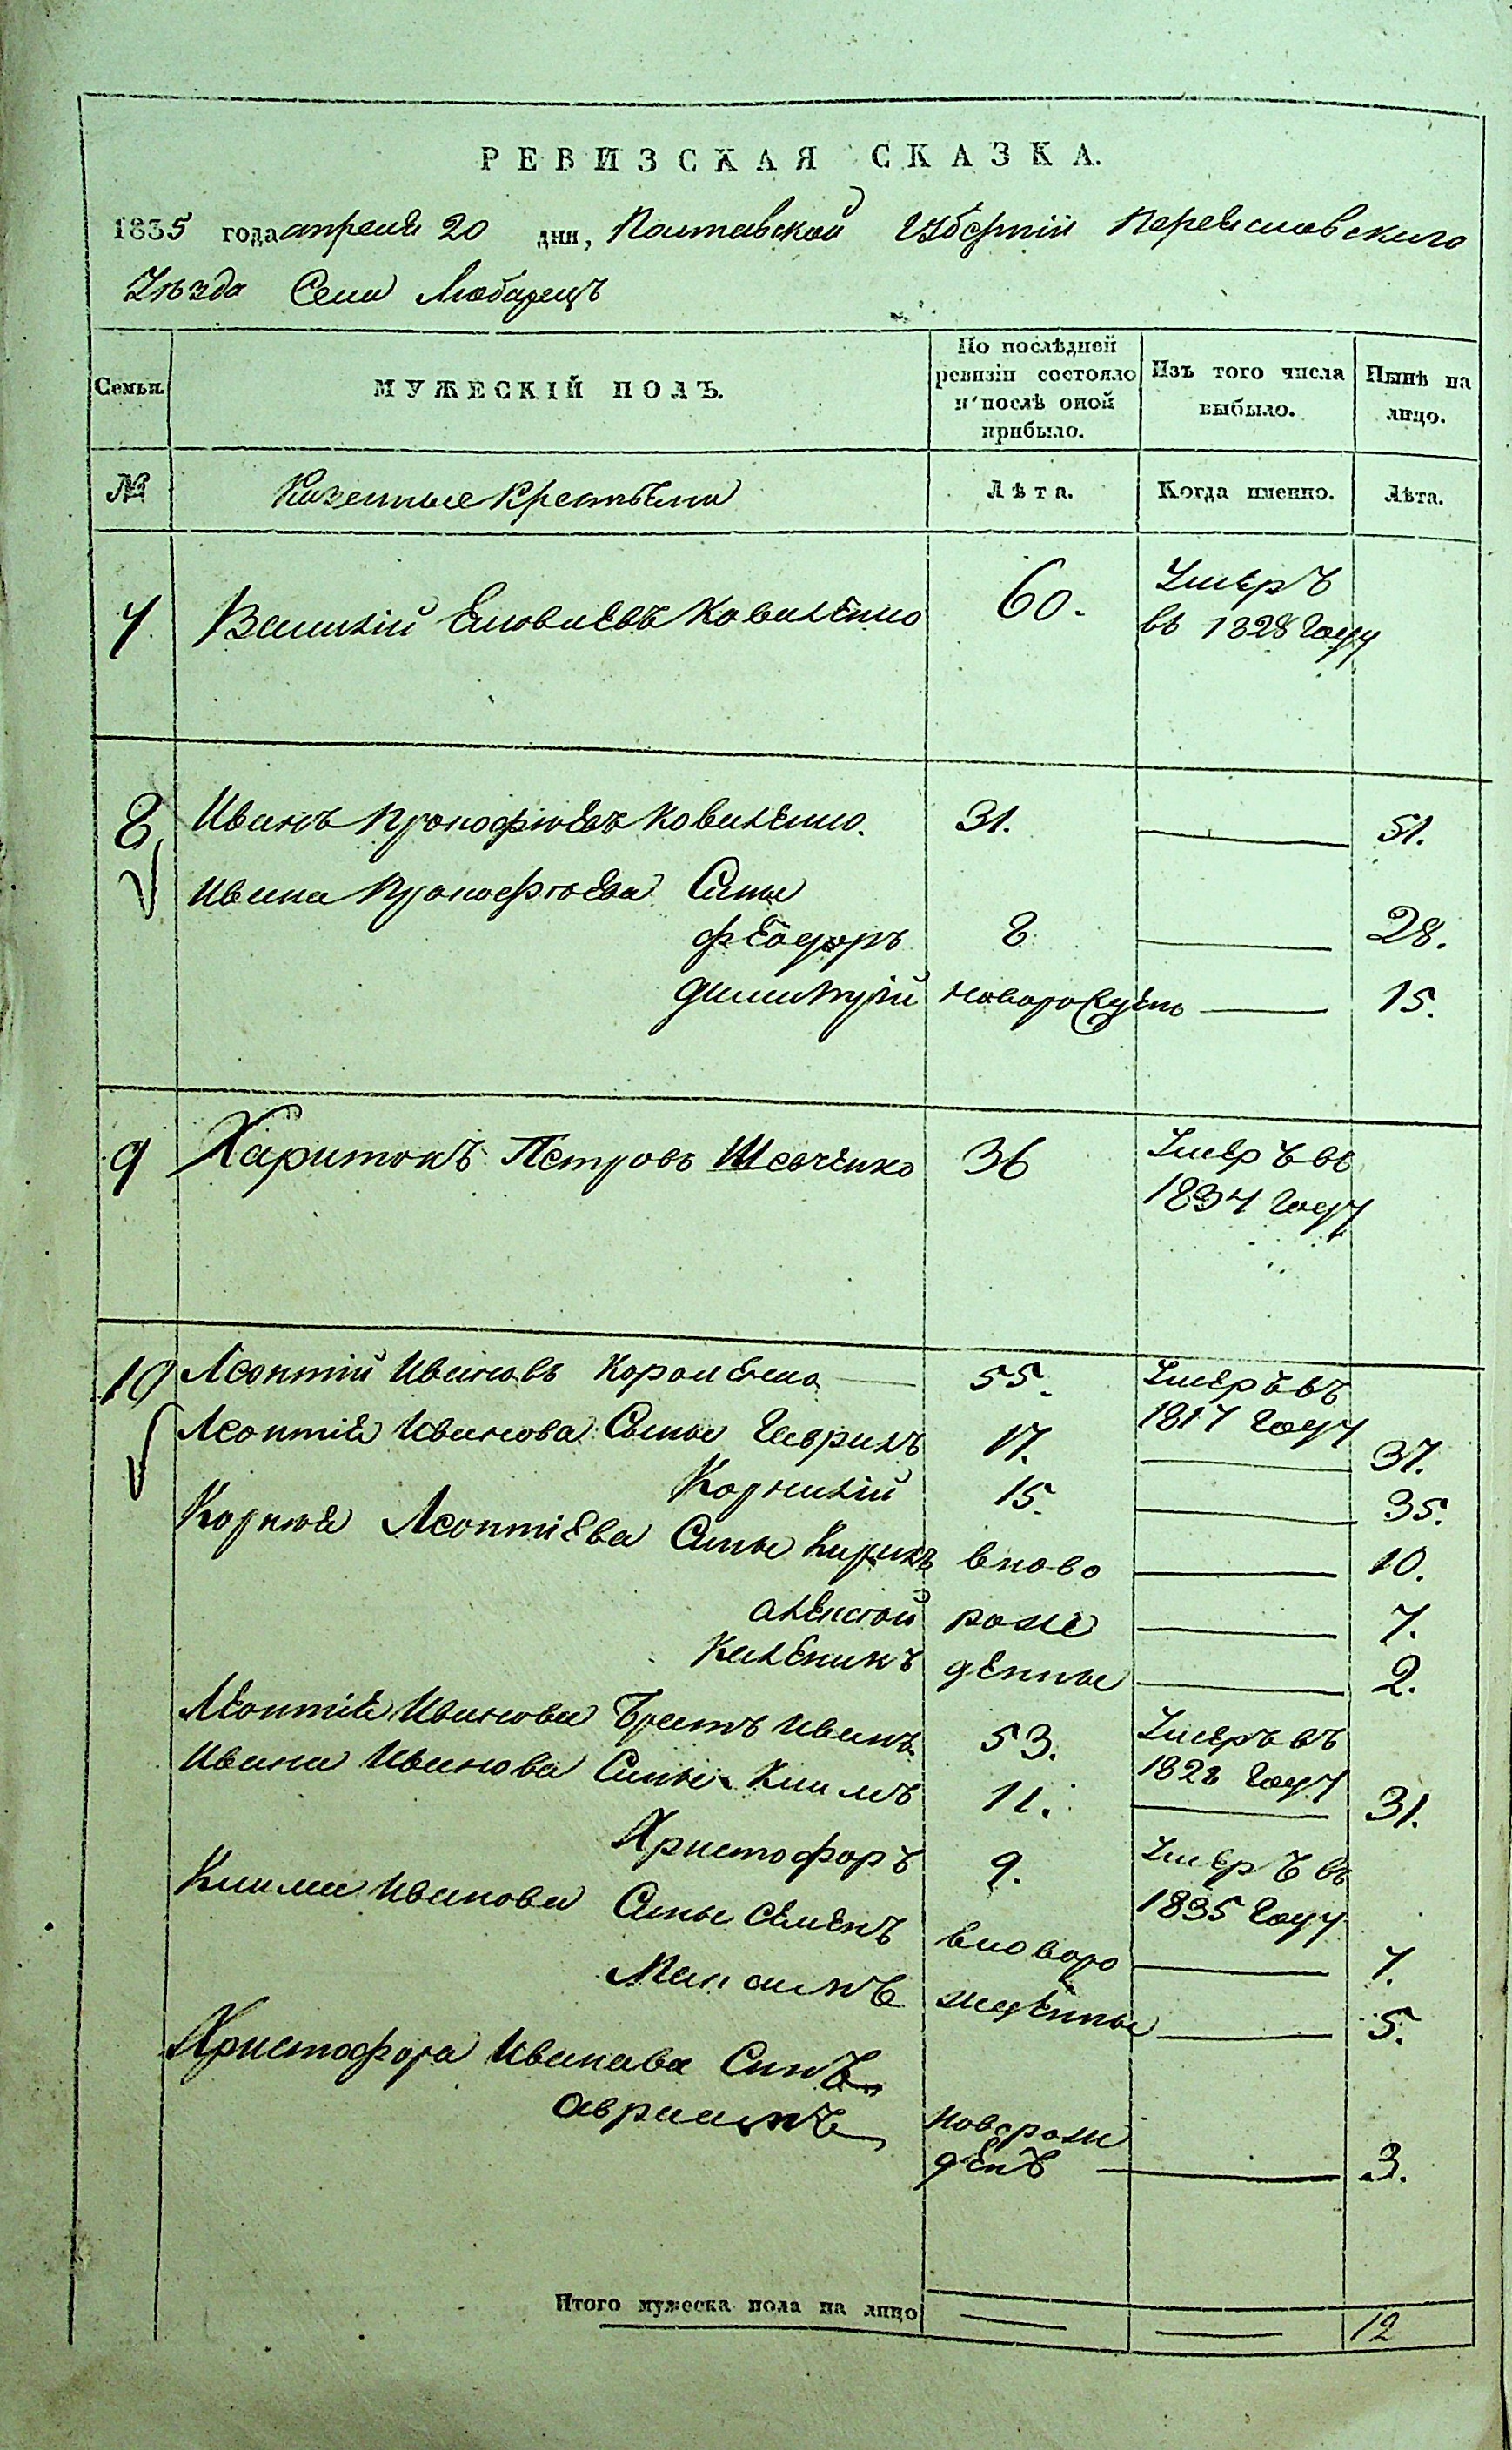 РЕВИЗСКАЯ СКАЗКА.
1835 года апреля 20 дня, Полтавской Губерніи Переясловскаго
Уѣзда Села Любарецъ
Семьи.
МУЖЕСКІЙ ПОЛЪ.
По послѣдней ревизіи состояло и послѣ оной прибыло.
Изъ того числа выбыло.
Нынѣ на лицо.
№
Казенные Крестьяне
Лѣта.
Когда именно.
Лѣта.
7. Василій Коваленко 60. Умеръ
въ 1828 году
8 Иванъ Прокофіевъ Коваленко. 31. 51.
Ивана Прокофіева Сыны
Феодоръ 8 28.
Димитрій новорожденъ 15.
9 Харитонъ Петровъ Шевченко 36 Умеръ въ
1834 году
10 Леонтій Ивановъ Короленко 55. Умеръ въ
1817 году
Леонтія Иванова Сыны Гаврилъ 17. 37.
Корнилій 15. 35.
Корнія Леонтіева Сыны Кирилъ вново 10.
Алексій рож 7.
Каленикъ денные 2.
Леонтія Иванова Братъ Иванъ 53. Умеръ въ
1828 году
Ивана Иванова Сыны Климъ 11. 31.
Христофоръ 9. Умеръ въ
1835 году
Клима Иванова Сыны Семенъ вноворо 7.
Максимъ жденные 5.
Христофора Иванова Сынъ
Авраамъ новорож
денъ 3.
Итого мужеска пола на лицо 12